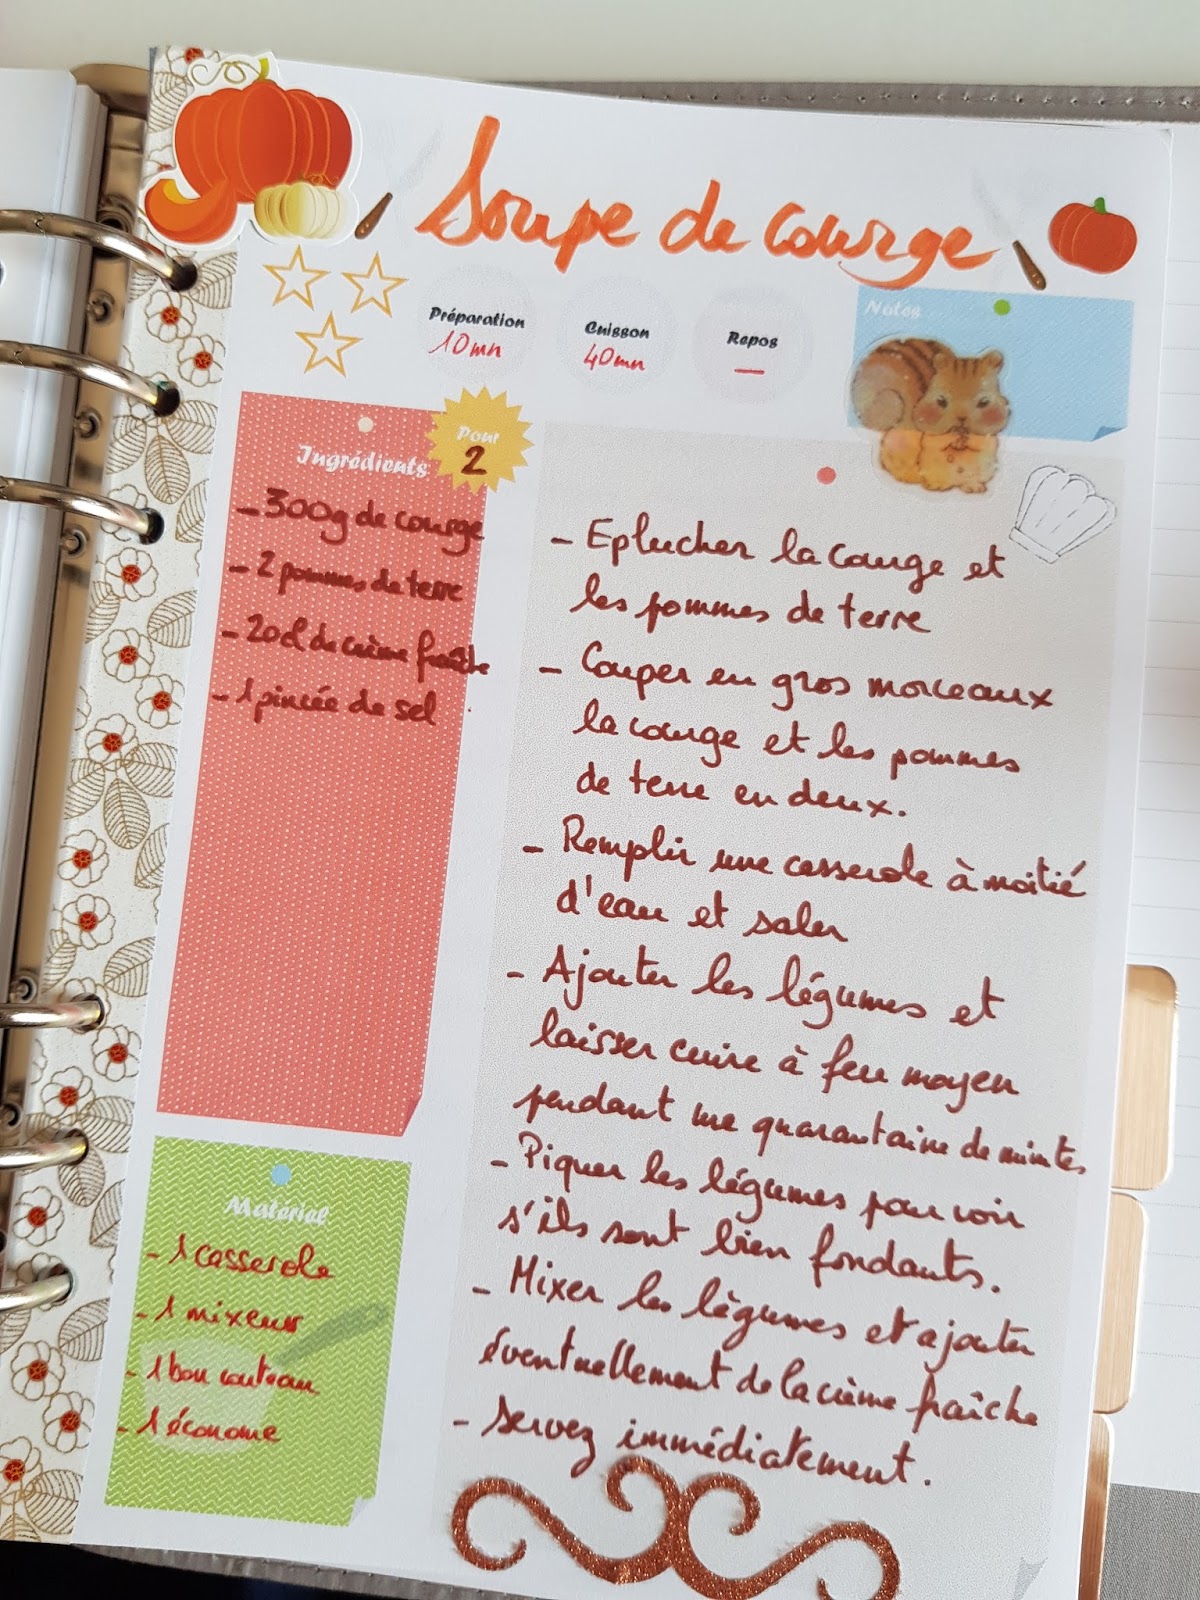 Soupe de courge
Préparation
10mn
Cuisson
40mn
Repos
—
Notes
Ingrédients
Pour
2
- 300g de courge
- 2 pommes de terre
- 20cl de crème fraîche
- 1 pincée de sel
Matériel
- 1 casserole
- 1 mixeur
- 1 bon couteau
- 1 économe
- Eplucher la courge et
les pommes de terre
- Couper en gros morceaux
la courge et les pommes
de terre en deux.
- Remplir une casserole à moitié
d'eau et saler
- Ajouter les légumes et
laisser cuire à feu moyen
pendant une quarantaine de minutes
- Piquer les légumes pour voir
s'ils sont bien fondants.
- Mixer les légumes et ajouter
éventuellement de la crème fraîche
- Servez immédiatement.